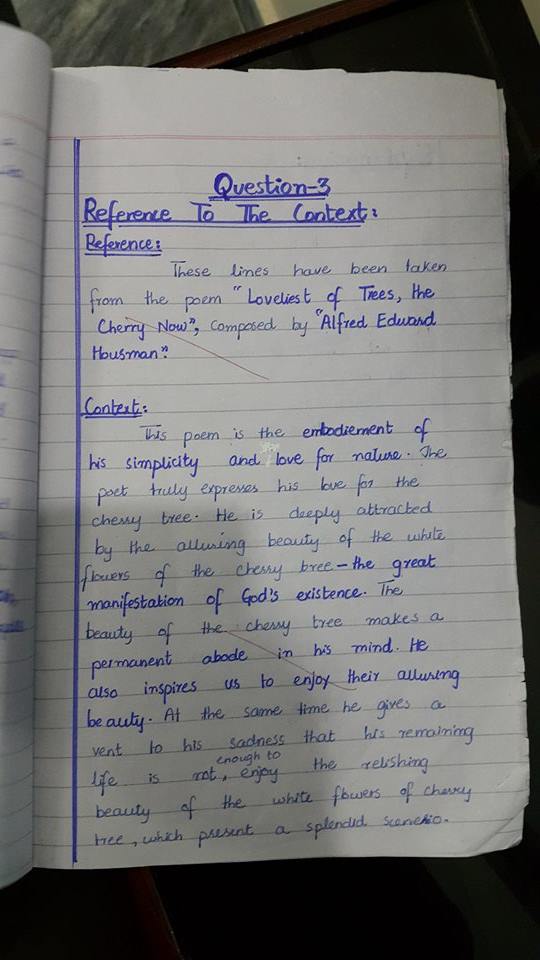 Question-3
Reference To The Context:
Reference:
These lines have been taken
from the poem "Loveliest of Trees, the
Cherry Now", composed by "Alfred Edward
Housman".
Context:
This poem is the embodiement of
his simplicity and love for nature. The
poet truly expresses his love for the
cherry tree. He is deeply attracted
by the alluring beauty of the white
flowers of the cherry tree – the great
manifestation of God's existence. The
beauty of the cherry tree makes a
permanent abode in his mind. He
also inspires us to enjoy their alluring
beauty. At the same time he gives a
vent to his sadness that his remaining
life is not, enough to enjoy the relishing
beauty of the white flowers of cherry
tree, which present a splendid